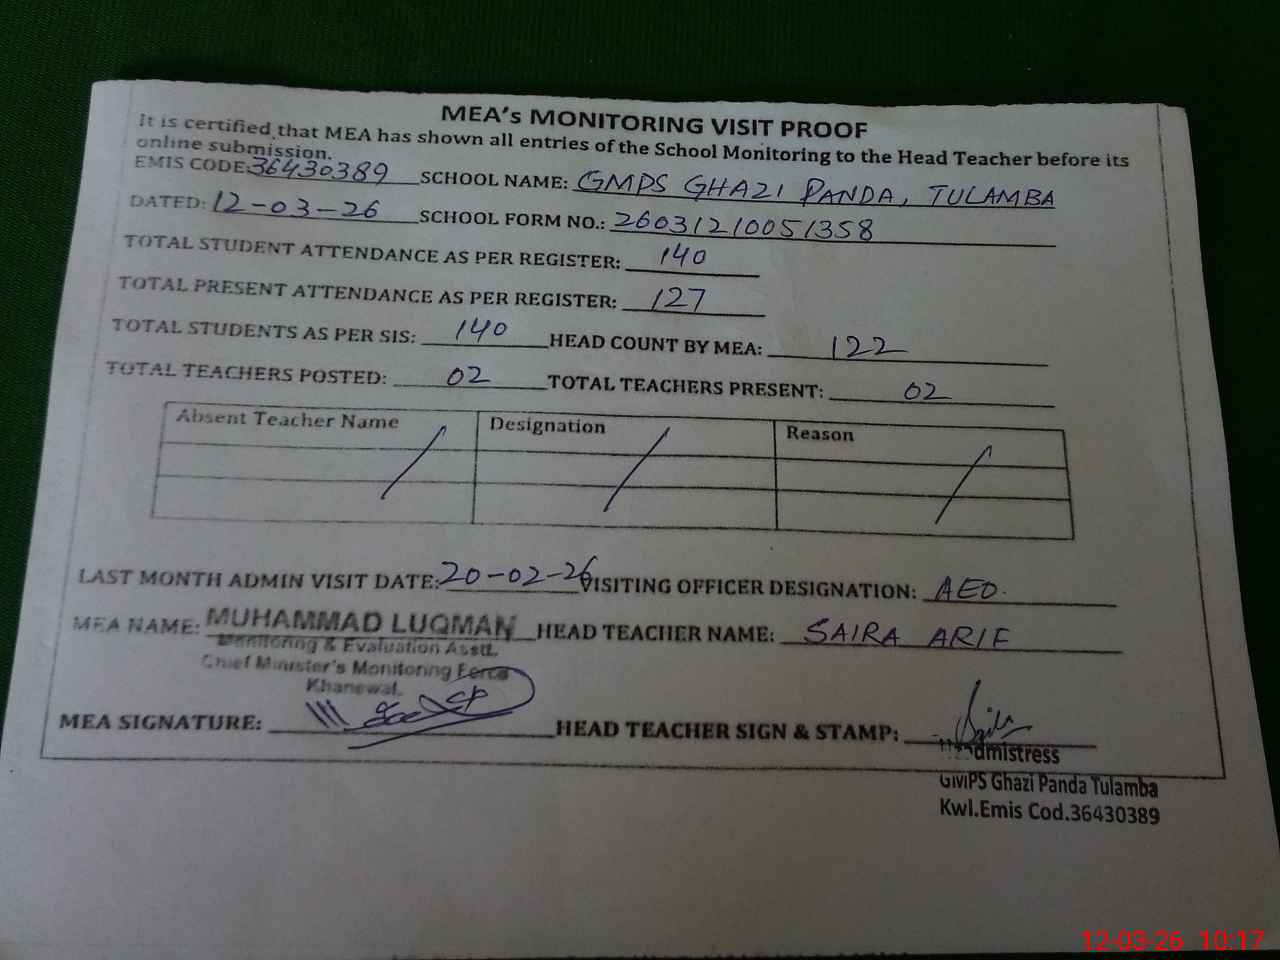 MEA's MONITORING VISIT PROOF
It is certified that MEA has shown all entries of the School Monitoring to the Head Teacher before its
online submission.
EMIS CODE: 36430389 SCHOOL NAME: GMPS GHAZI PANDA, TULAMBA
DATED: 12-03-26 SCHOOL FORM NO.: 26031210051358
TOTAL STUDENT ATTENDANCE AS PER REGISTER: 140
TOTAL PRESENT ATTENDANCE AS PER REGISTER: 127
TOTAL STUDENTS AS PER SIS: 140 HEAD COUNT BY MEA: 122
TOTAL TEACHERS POSTED: 02 TOTAL TEACHERS PRESENT: 02
Absent Teacher Name Designation Reason
LAST MONTH ADMIN VISIT DATE: 20-02-26 VISITING OFFICER DESIGNATION: AEO.
MEA NAME: MUHAMMAD LUQMAN HEAD TEACHER NAME: SAIRA ARIF
Monitoring & Evaluation Asstt.
Chief Minister's Monitoring Force
Khanewal.
MEA SIGNATURE: HEAD TEACHER SIGN & STAMP:
GMPS Ghazi Panda Tulamba
Kwl.Emis Cod.36430389
12-03-26 10:17